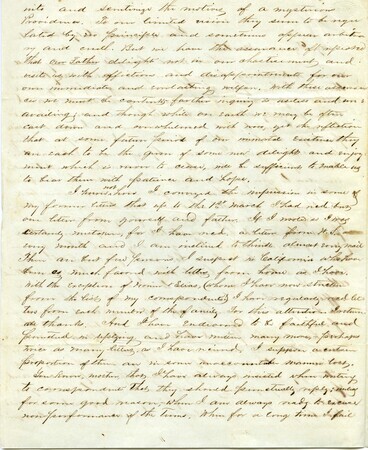 into and scrutinize the motives, of a mysterious
Providence. To our limited vision they seem to be regu
lated by no principles and sometimes appear arbitra
ry and cruel. But we have the assurance
that our Father delights not in our chastisement, and
visits us with afflictions and disappointments for our
own immediate and everlasting welfare. With these assuran
ces we must be content, farther inquiry is useless and un
availing; and though while on earth we may be often
cast down and overwhelmed with woe, yet the reflection
that at some future period of our immortal existence they
are each to be the germ of some new delight and enjoy
ment which is never to cease, will be sufficient to enable us
to bear them with patience and hope.
I know not how I conveyed the impression in some of
my former letters that up to the 12th March I had recd but
one letter from yourself and father. If I wrote so I was
certainly mistaken for I have recd a letter from
every month and I am inclined to think almost every mail
There are but few persons I suspect in California who have
been so much favored with letters from home as I have
with the exceptions of
from the lists of my correspondents) I have regularly recd let
ters from each member of the family. For this attention I return
all thanks. And I have endeavored to be faithful and
punctual in replying and have written many more, perhaps
times as many letters, as I have received,
proportion of them are in some
You know, mother, that I have always insisted when writing
to correspondents that they should punctually reply; unless
for some good reason, when I am always ready to excuse
nonperformance of the terms. When for a long time I fail